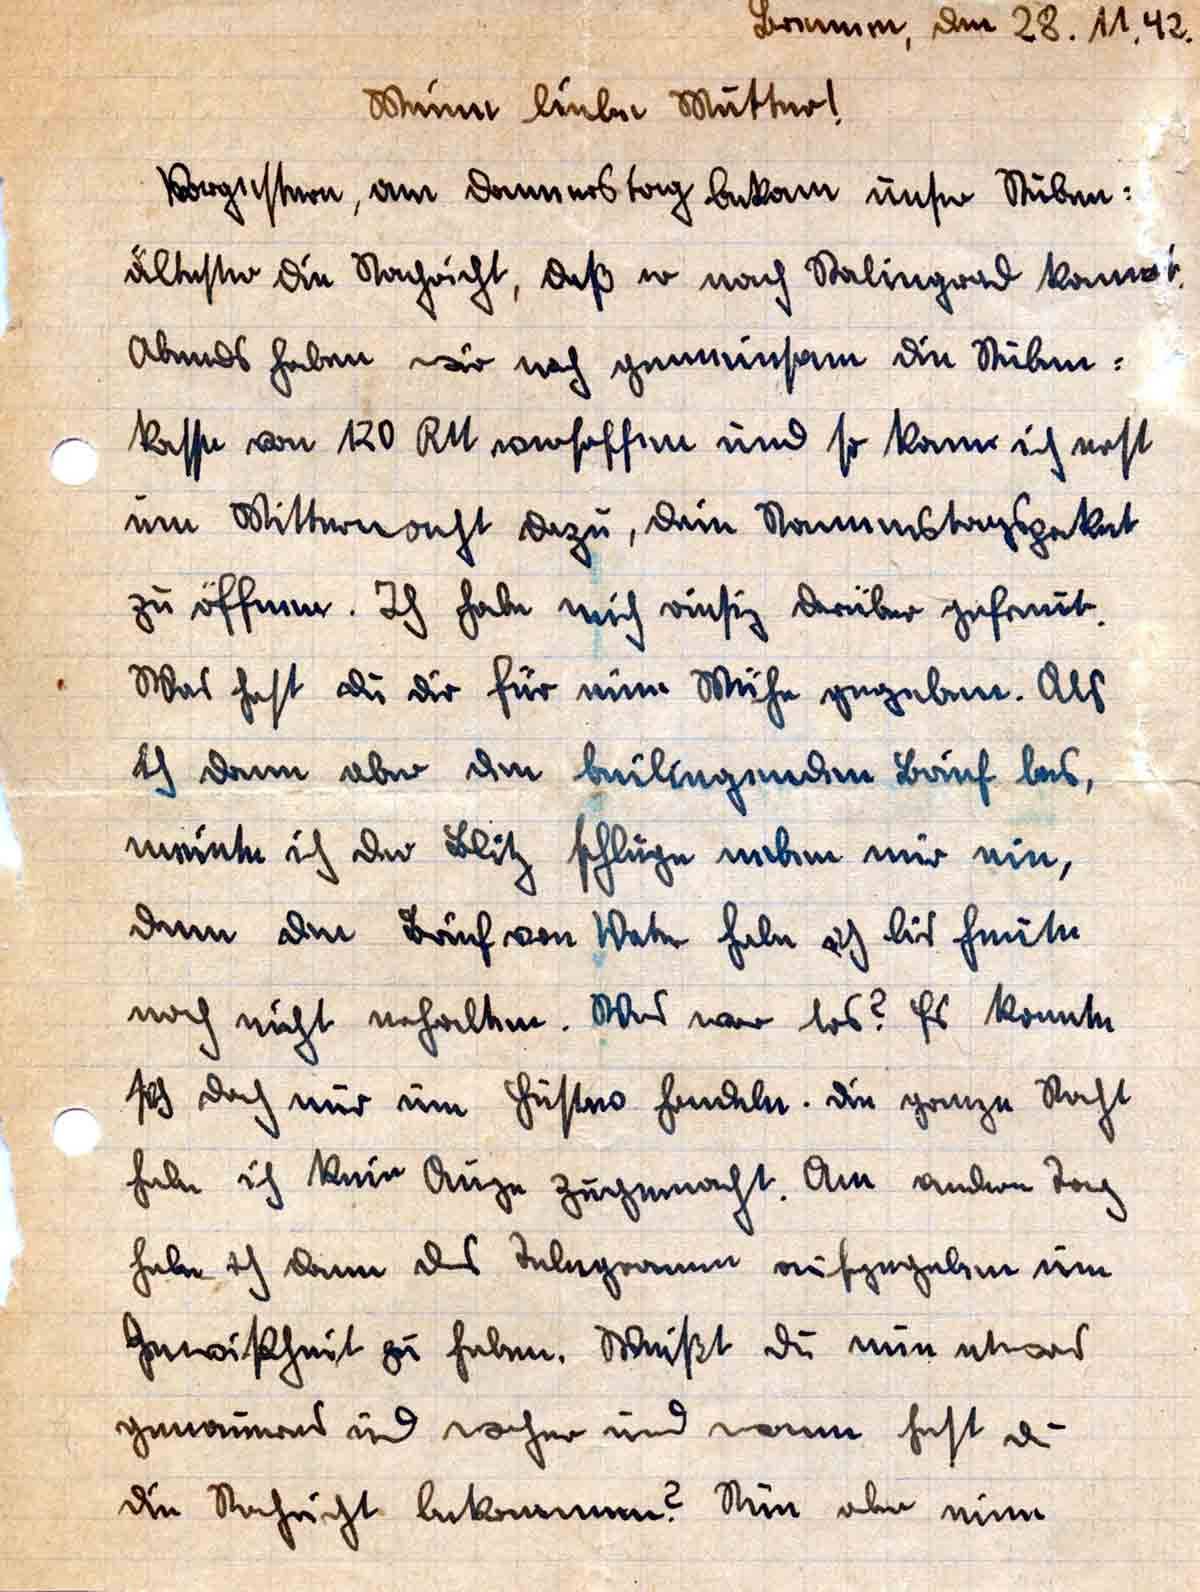 Bremen, den 28. 11. 42.
Meine liebe Mutter!
Vorgestern, am Donnerstag bekam unser Stuben=
ältester die Nachricht, daß er nach Stalingrad kommt.
Abends haben wir noch gemeinsam die Stuben=
kasse von 120 RM versoffen und so kam ich erst
um Mitternacht dazu, dein Nammenstagspaket
zu öffnen. Ich habe mich riesig darüber gefreut.
Was hast du dir für eine Mühe gegeben. Als
ich dann aber den beiliegenden Brief las,
meinte ich der Blitz schlüge neben mir ein,
denn den Brief von Vater habe ich bis heute
noch nicht erhalten. Was war los? Es konnte
sich doch nur um Gustav handeln. Die ganze Nacht
habe ich kein Auge zugemacht. Am andern Tag
habe ich dann das Telegramm aufgegeben um
Gewißheit zu haben. Weißt du nun etwas
genaueres und woher und wann hast du
die Nachricht bekommen? Nun aber eine